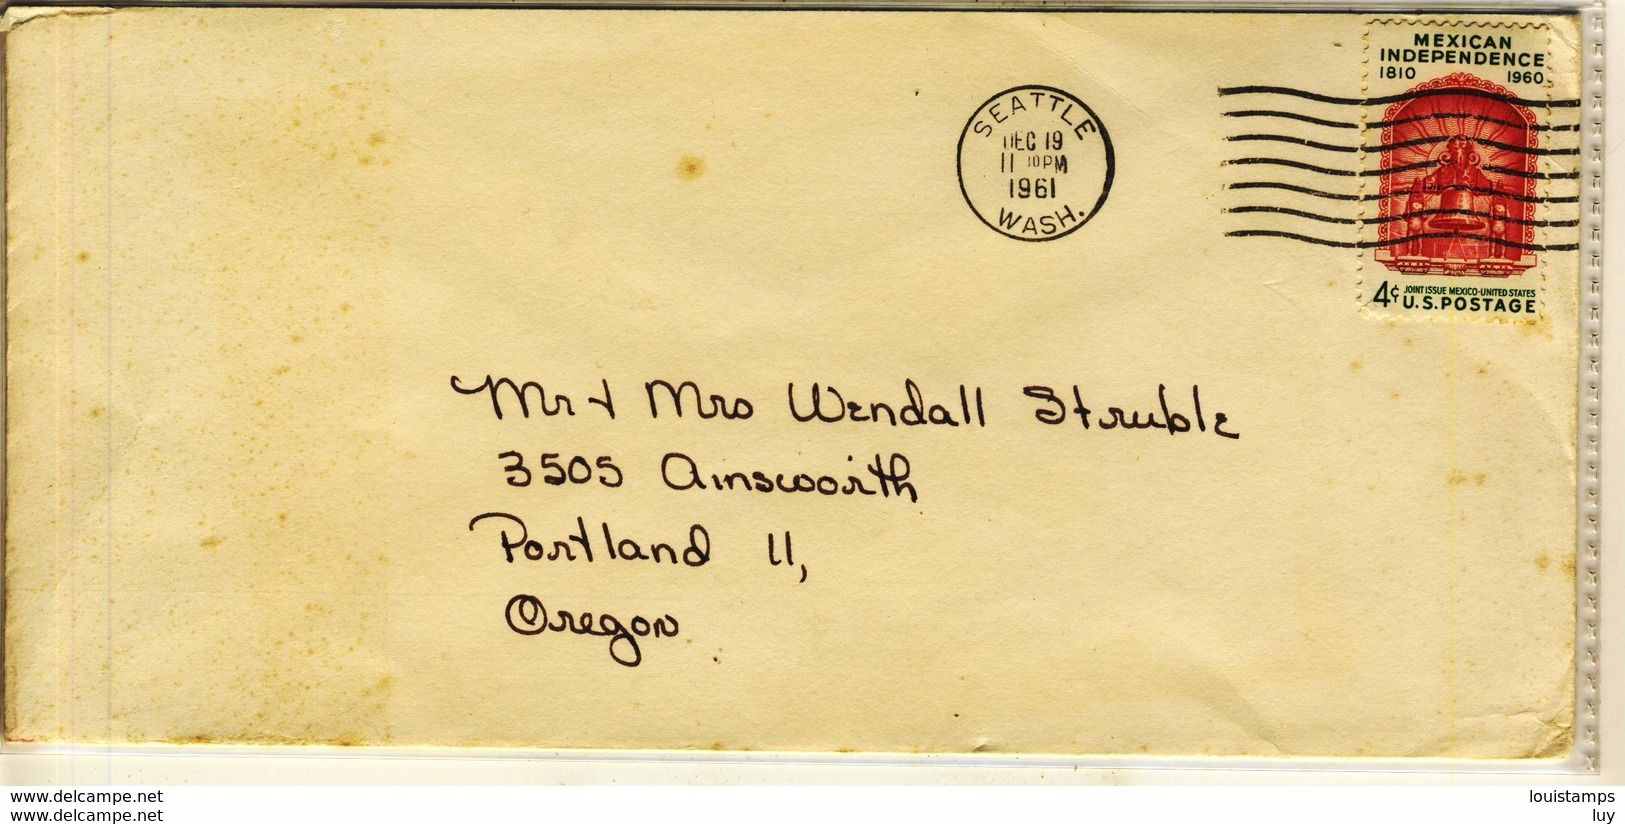 MEXICAN
INDEPENDENCE
1810 1960
SEATTLE
DEC 19
PM
1961
WASH.
4¢ JOINT ISSUE MEXICO-UNITED STATES
U.S. POSTAGE
Mr + Mrs Wendall Struble
3505 Ainsworth
Portland 11,
Oregon
www.delcampe.net louistamps
www.delcampe.net luy